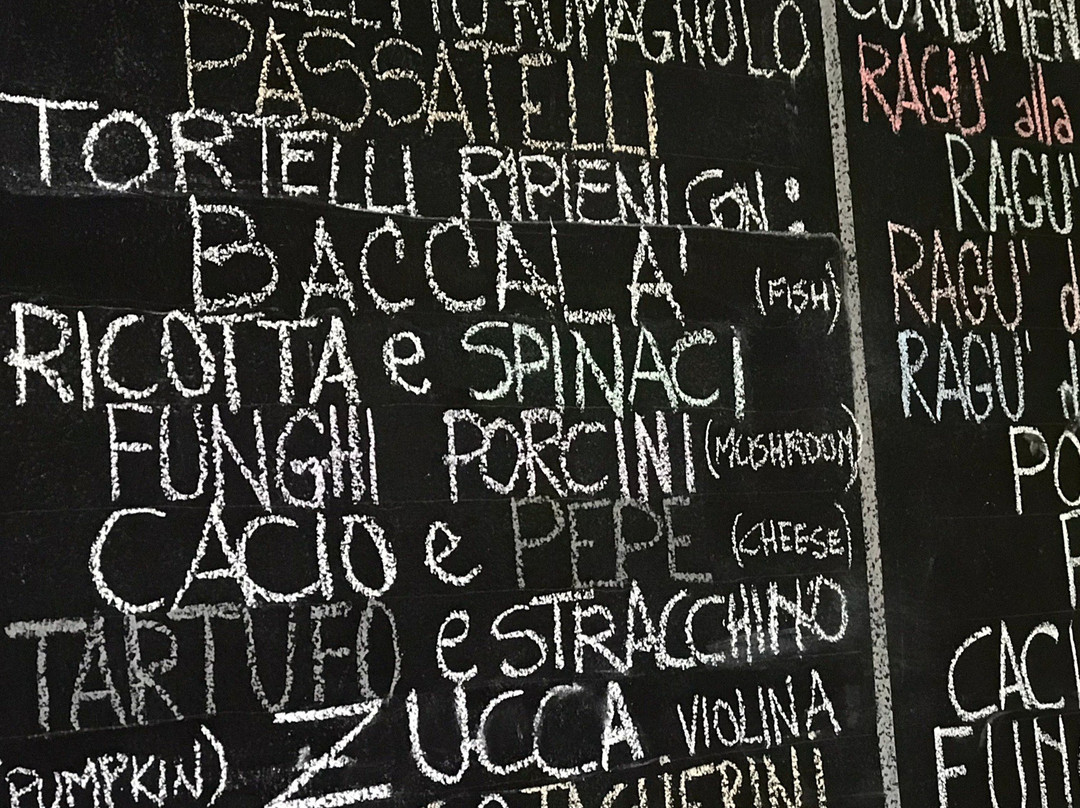 ROMAGNOLO
PASSATELLI
TORTELLI RIPIENI CON :
BACCALA' (FISH)
RICOTTA e SPINACI
FUNGHI PORCINI (MUSHROOM)
CACIO e PEPE (CHEESE)
TARTUFO e STRACCHINO
(PUMPKIN) ZUCCA VIOLINA
RAGU' alla
RAGU'
RAGU' d
RAGU' d
PO
CACI
FUN